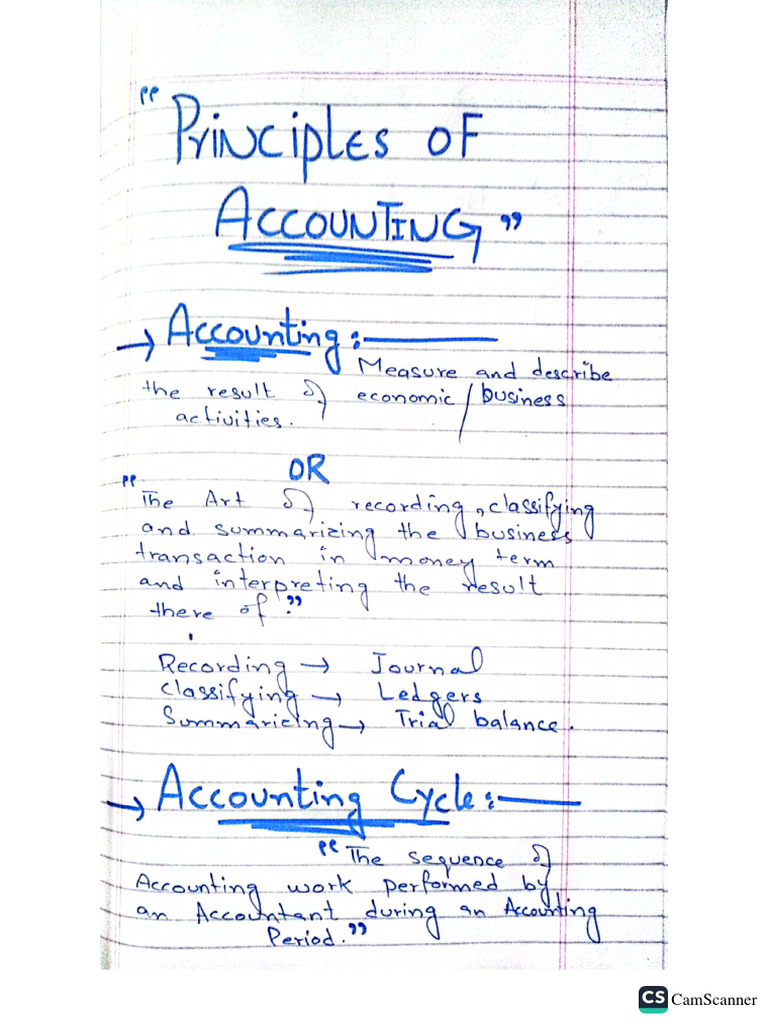 "Principles of
Accounting"
→ Accounting:—
Measure and describe
the result of economic/business
activities.
OR
"The Art of recording, classifying
and summarizing the business
transaction in money term
and interpreting the result
there of."
Recording → Journal
Classifying → Ledgers
Summarizing → Trial balance.
→ Accounting Cycle:—
"The sequence of
Accounting work performed by
an Accountant during an Accounting
Period."
CS CamScanner